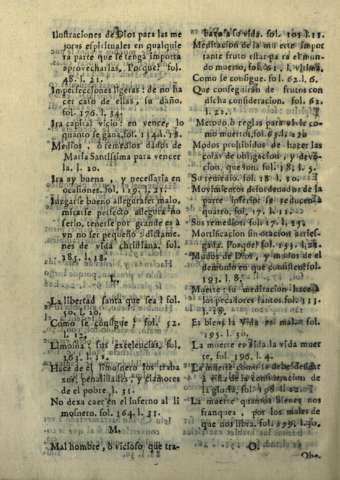 Ilustraciones de Dios para las me
joras espirituales en qualquie
ra parte que se tenga importa
aprovecharlas, Porque? fol.
45. l. 21.
Imperfecciones ligeras: de no ha
cer caso de ellas, su daño.
fol. 176. l. 14.
Ira capital vicio: en vence, lo
quanto se gana, fol. 114. l. 18.
Medios, ò remedios dados de
Maria Santissima para vencer
la. l. 20.
Ira ay buena, y necessaria en
ocasiones. fol. 119. l. 21.
Juzgarse bueno assegurase malo,
mirarse perfecto assegura no
serlo, tenerse por grande en à
vn no ser pequeño: dictame-
nes de vida christiana. fol.
185. l. 18.
L.
La libertad santa que sea? fol.
50. l. 20.
Como se consigue? fol. 52.
l. 12.
Limosna: sus excelencias, fol.
163. l. 11.
Hace de el limosnero los traba
xos, penalidades, y clamores
de el pobre. l. 31.
No dexa caer en el Infierno al li
mosnero. fol. 164. l. 31.
M.
Mal hombre, ò vicioso que tra-
baxo à su vida. fol. 103. l. 11.
Meditacion de la muerte impor
tante fruto estar para el mun-
do muerto, fol. 61. l. vltima.
Como se consigue. fol. 62. l. 6.
Que conseguiràn de frutos con
dicha consideracion. fol. 62.
l. 21.
Metodo ò reglas para obrar co-
mo muertos, fol. 63. l. 26
Modos prohibidos de hacer las
cosas de obligacion, y devo-
cion, que son. fol. 18. l. 5.
Su remedio. fol. 18. l. 20.
Movimientos desordenados de la
parte inferior se reducen à
quatro, fol. 17. l. 12.
Sus remedios. fol. 17. l. 23.
Mortificacion sin oracion arries-
gada. Porque? fol. 193. l. 28.
Modos de Dios, y modos de el
demonio en que consisten fol.
193. l. 8.
Muerte: su meditacion hace à
los pecadores santos fol. 113.
l. 18.
Es bien la Vida es mal. fol.
195. l. 30.
La muerte es vida la vida muer
te, fol. 196. l. 4.
La muerte como se debe desear
de la consideracion de
la gloria, fol. 198 l. 22.
La muerte quantos bienes nos
franquea, por los males de
que nos libra. fol. 199. l. 30.
O.
Obe.